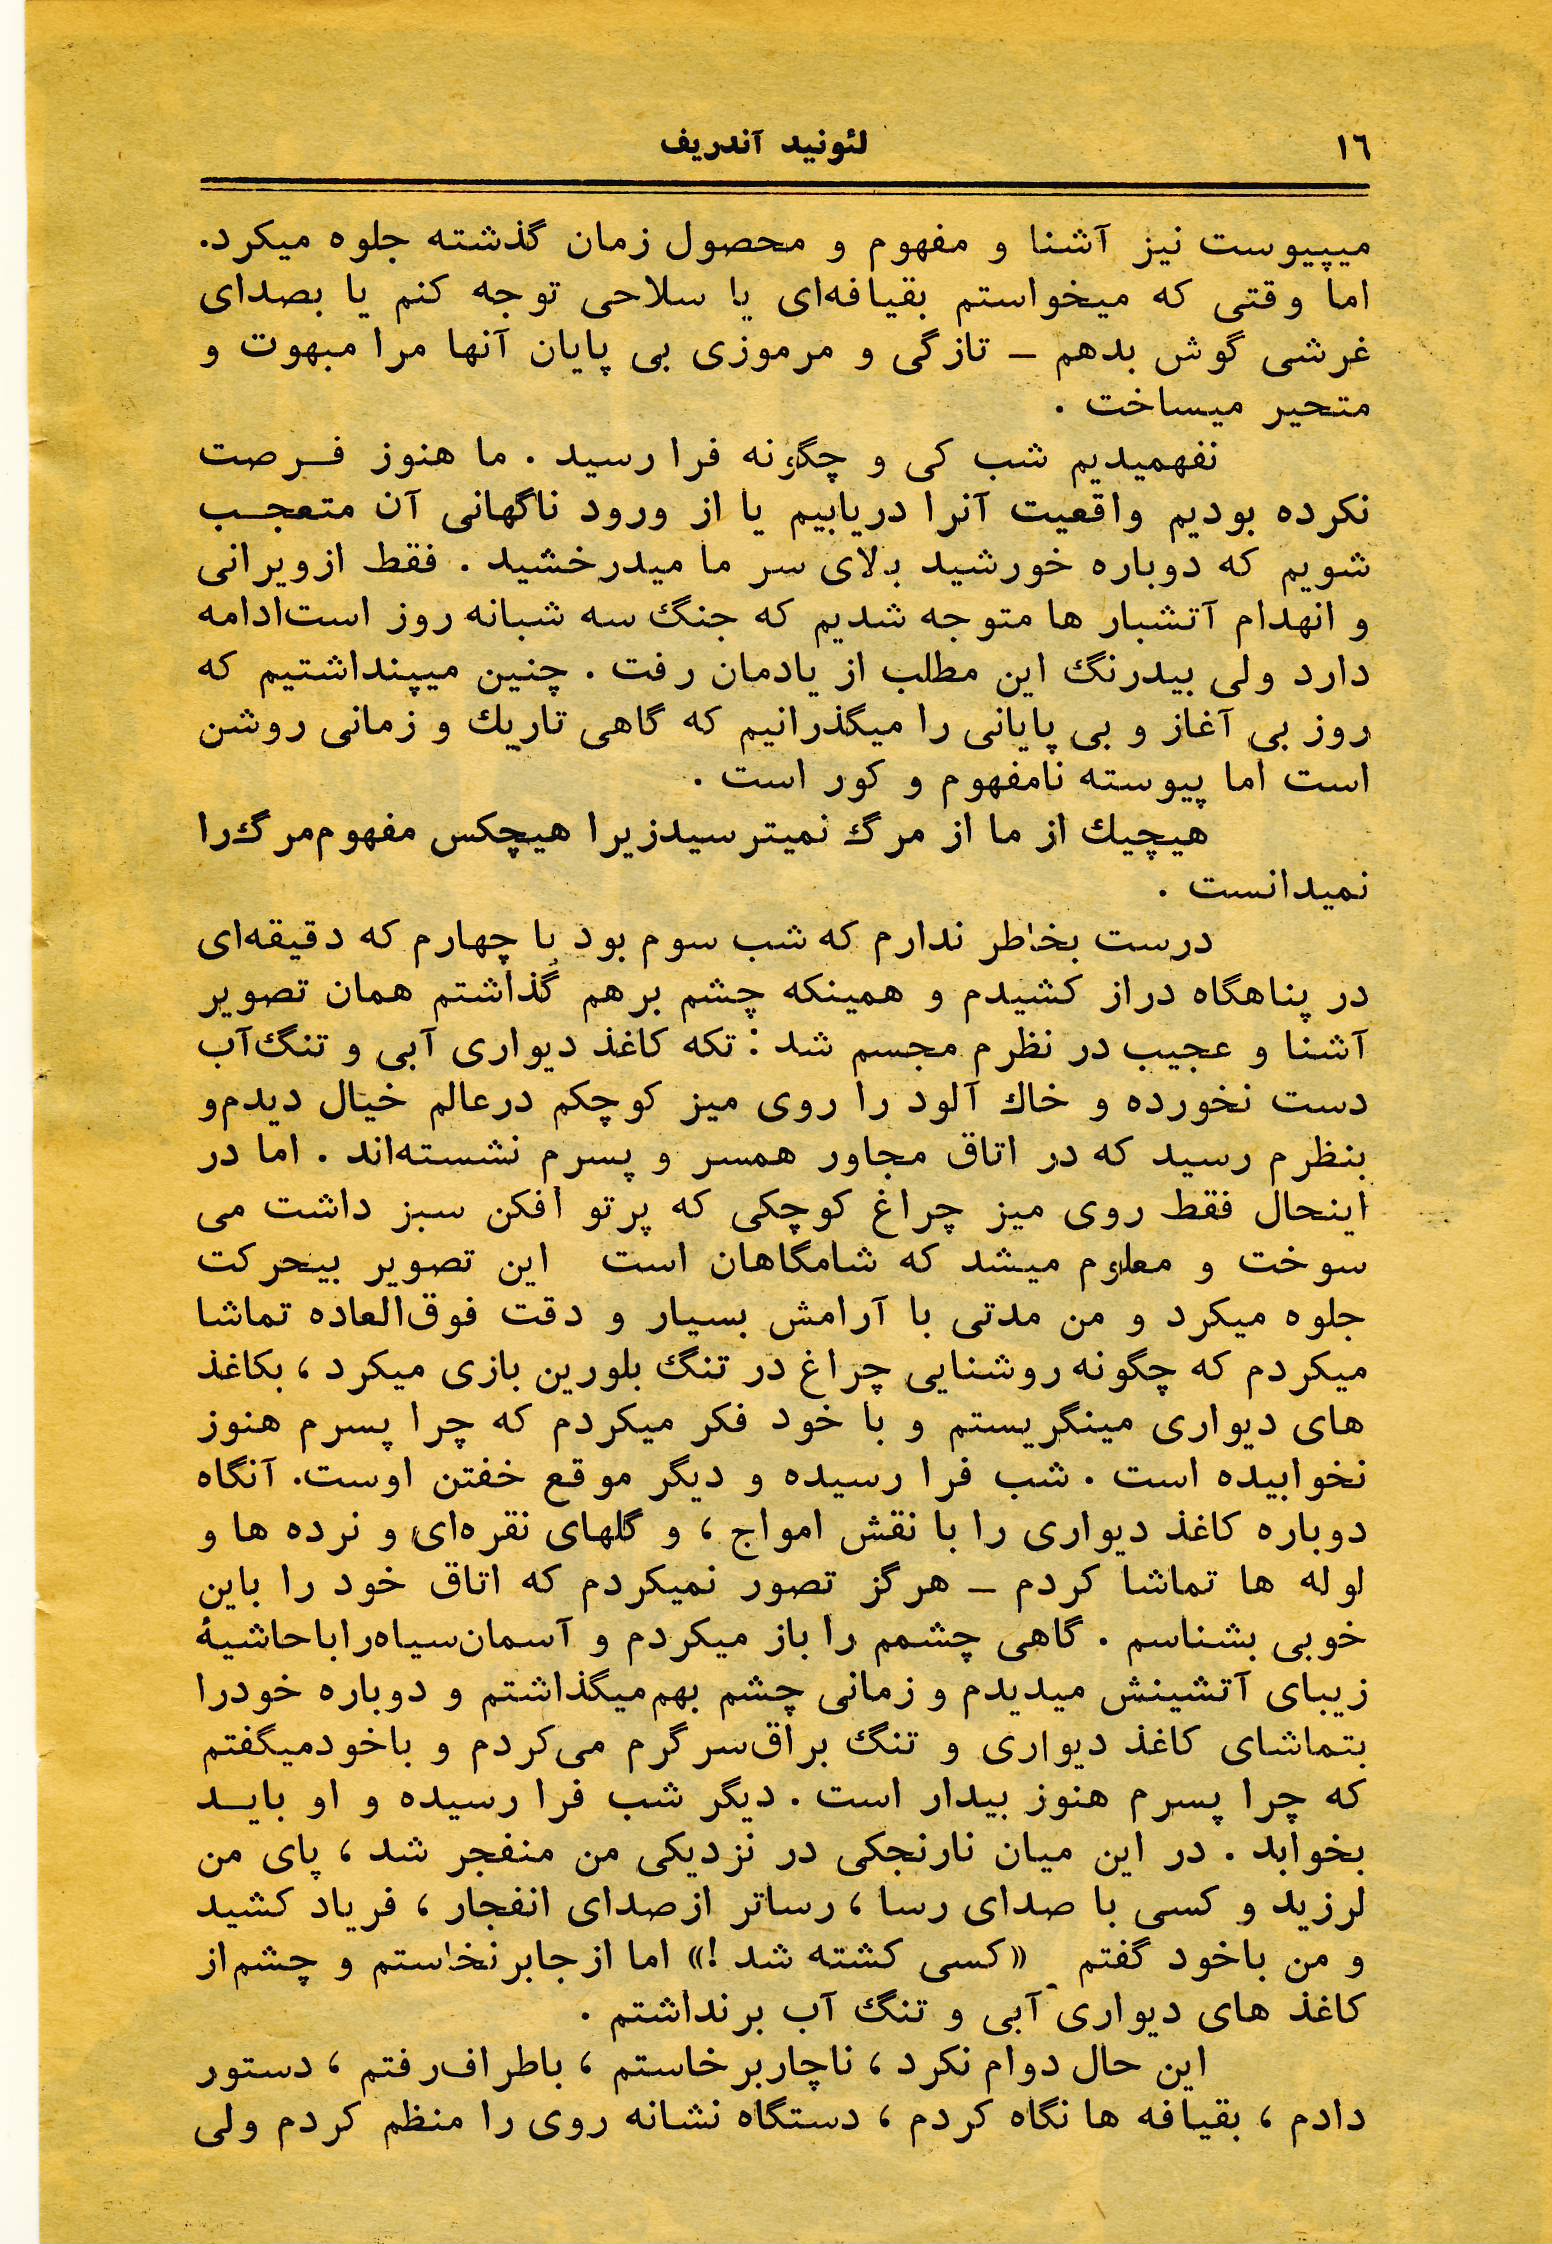 ١٦
لئونید آندریف
میپیوست نیز آشنا و مفهوم و محصول زمان گذشته جلوه میکرد.
اما وقتی که میخواستم بقیافه‌ای یا سلاحی توجه کنم یا بصدای
غرشی گوش بدهم – تازگی و مرموزی بی پایان آنها مرا مبهوت و
متحیر میساخت .
نفهمیدیم شب کی و چگونه فرا رسید . ما هنوز فـرصت
نکرده بودیم واقعیت آنرا دریابیم یا از ورود ناگهانی آن متعجـب
شویم که دوباره خورشید بالای سر ما میدرخشید . فقط ازویرانی
و انهدام آتشبار ها متوجه شدیم که جنگ سه شبانه روز است‌ادامه
دارد ولی بیدرنگ این مطلب از یادمان رفت . چنین میپنداشتیم که
روز بی آغاز و بی پایانی را میگذرانیم که گاهی تاریك و زمانی روشن
است اما پیوسته نامفهوم و کور است .
هیچیك از ما از مرگ نمیترسیدزیرا هیچکس مفهوم‌مرگ‌را
نمیدانست .
درست بخاطر ندارم که شب سوم بود یا چهارم که دقیقه‌ای
در پناهگاه دراز کشیدم و همینکه چشم برهم گذاشتم همان تصویر
آشنا و عجیب در نظرم مجسم شد : تکه کاغذ دیواری آبی و تنگ‌آب
دست نخورده و خاك آلود را روی میز کوچکم درعالم خیال دیدم‌و
بنظرم رسید که در اتاق مجاور همسر و پسرم نشسته‌اند . اما در
اینحال فقط روی میز چراغ کوچکی که پرتو افکن سبز داشت می
سوخت و معلوم میشد که شامگاهان است این تصویر بیحرکت
جلوه میکرد و من مدتی با آرامش بسیار و دقت فوق‌العاده تماشا
میکردم که چگونه روشنایی چراغ در تنگ بلورین بازی میکرد ، بکاغذ
های دیواری مینگریستم و با خود فکر میکردم که چرا پسرم هنوز
نخوابیده است . شب فرا رسیده و دیگر موقع خفتن اوست. آنگاه
دوباره کاغذ دیواری را با نقش امواج ، و گلهای نقره‌ای و نرده ها و
لوله ها تماشا کردم – هرگز تصور نمیکردم که اتاق خود را باین
خوبی بشناسم . گاهی چشمم را باز میکردم و آسمان‌سیاه‌راباحاشیهٔ
زیبای آتشینش میدیدم و زمانی چشم بهم‌میگذاشتم و دوباره خودرا
بتماشای کاغذ دیواری و تنگ براق‌سرگرم می‌کردم و باخودمیگفتم
که چرا پسرم هنوز بیدار است . دیگر شب فرا رسیده و او بایـد
بخوابد . در این میان نارنجکی در نزدیکی من منفجر شد ، پای من
لرزید و کسی با صدای رسا ، رساتر ازصدای انفجار ، فریاد کشید
و من باخود گفتم «کسی کشته شد !» اما ازجابرنخاستم و چشم‌از
کاغذ های دیواری آبی و تنگ آب برنداشتم .
این حال دوام نکرد ، ناچاربرخاستم ، باطراف‌رفتم ، دستور
دادم ، بقیافه ها نگاه کردم ، دستگاه نشانه روی را منظم کردم ولی